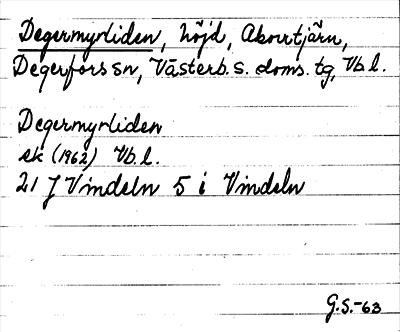 Degermyrliden, höjd, Akorrtjärn,
Degerfors sn, Västerb. s. doms. tg, Vb l.
Degermyrliden
ek (1962) Vb. l.
21 J Vindeln 5 i Vindeln
G.S.-63